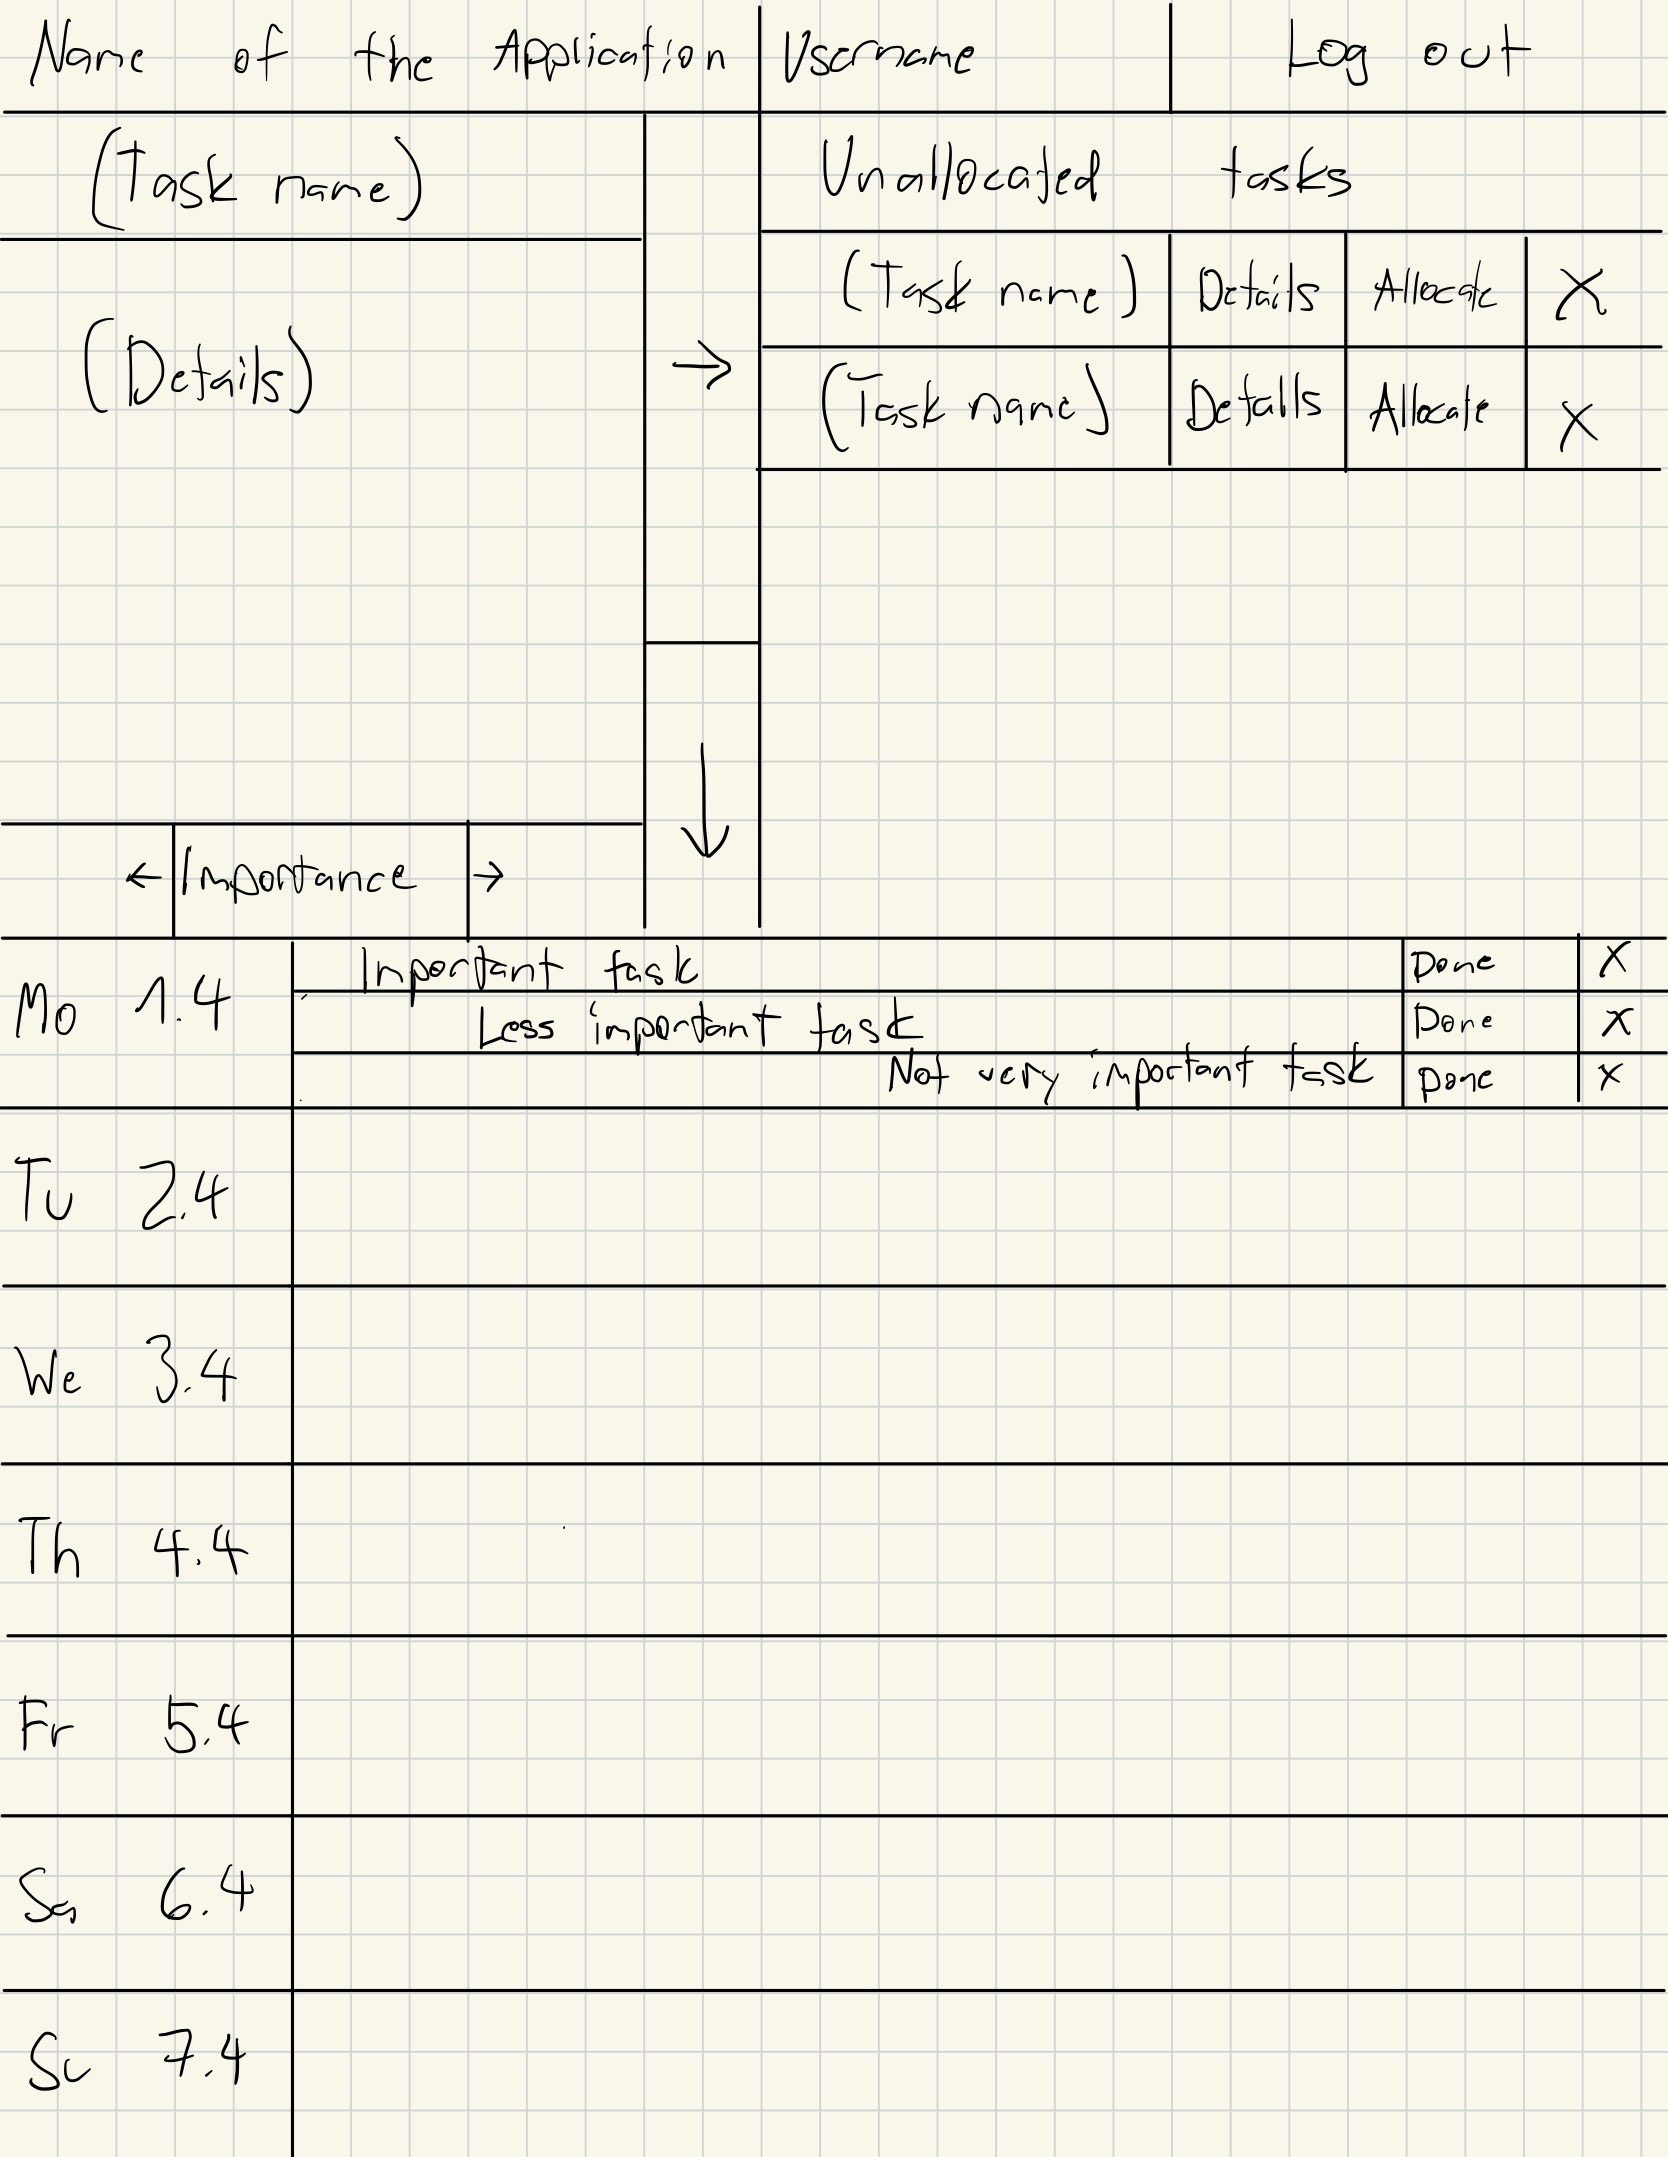 Name of the Application Username Log out
(Task name)
(Details)
← Importance →
→
↓
Unallocated tasks
(Task name) Details Allocate X
(Task name) Details Allocate X
Mo 1.4 Inportant task Done X
Less important task Done X
Not very important task Done X
Tu 2.4
We 3.4
Th 4.4
Fr 5.4
Sa 6.4
Su 7.4